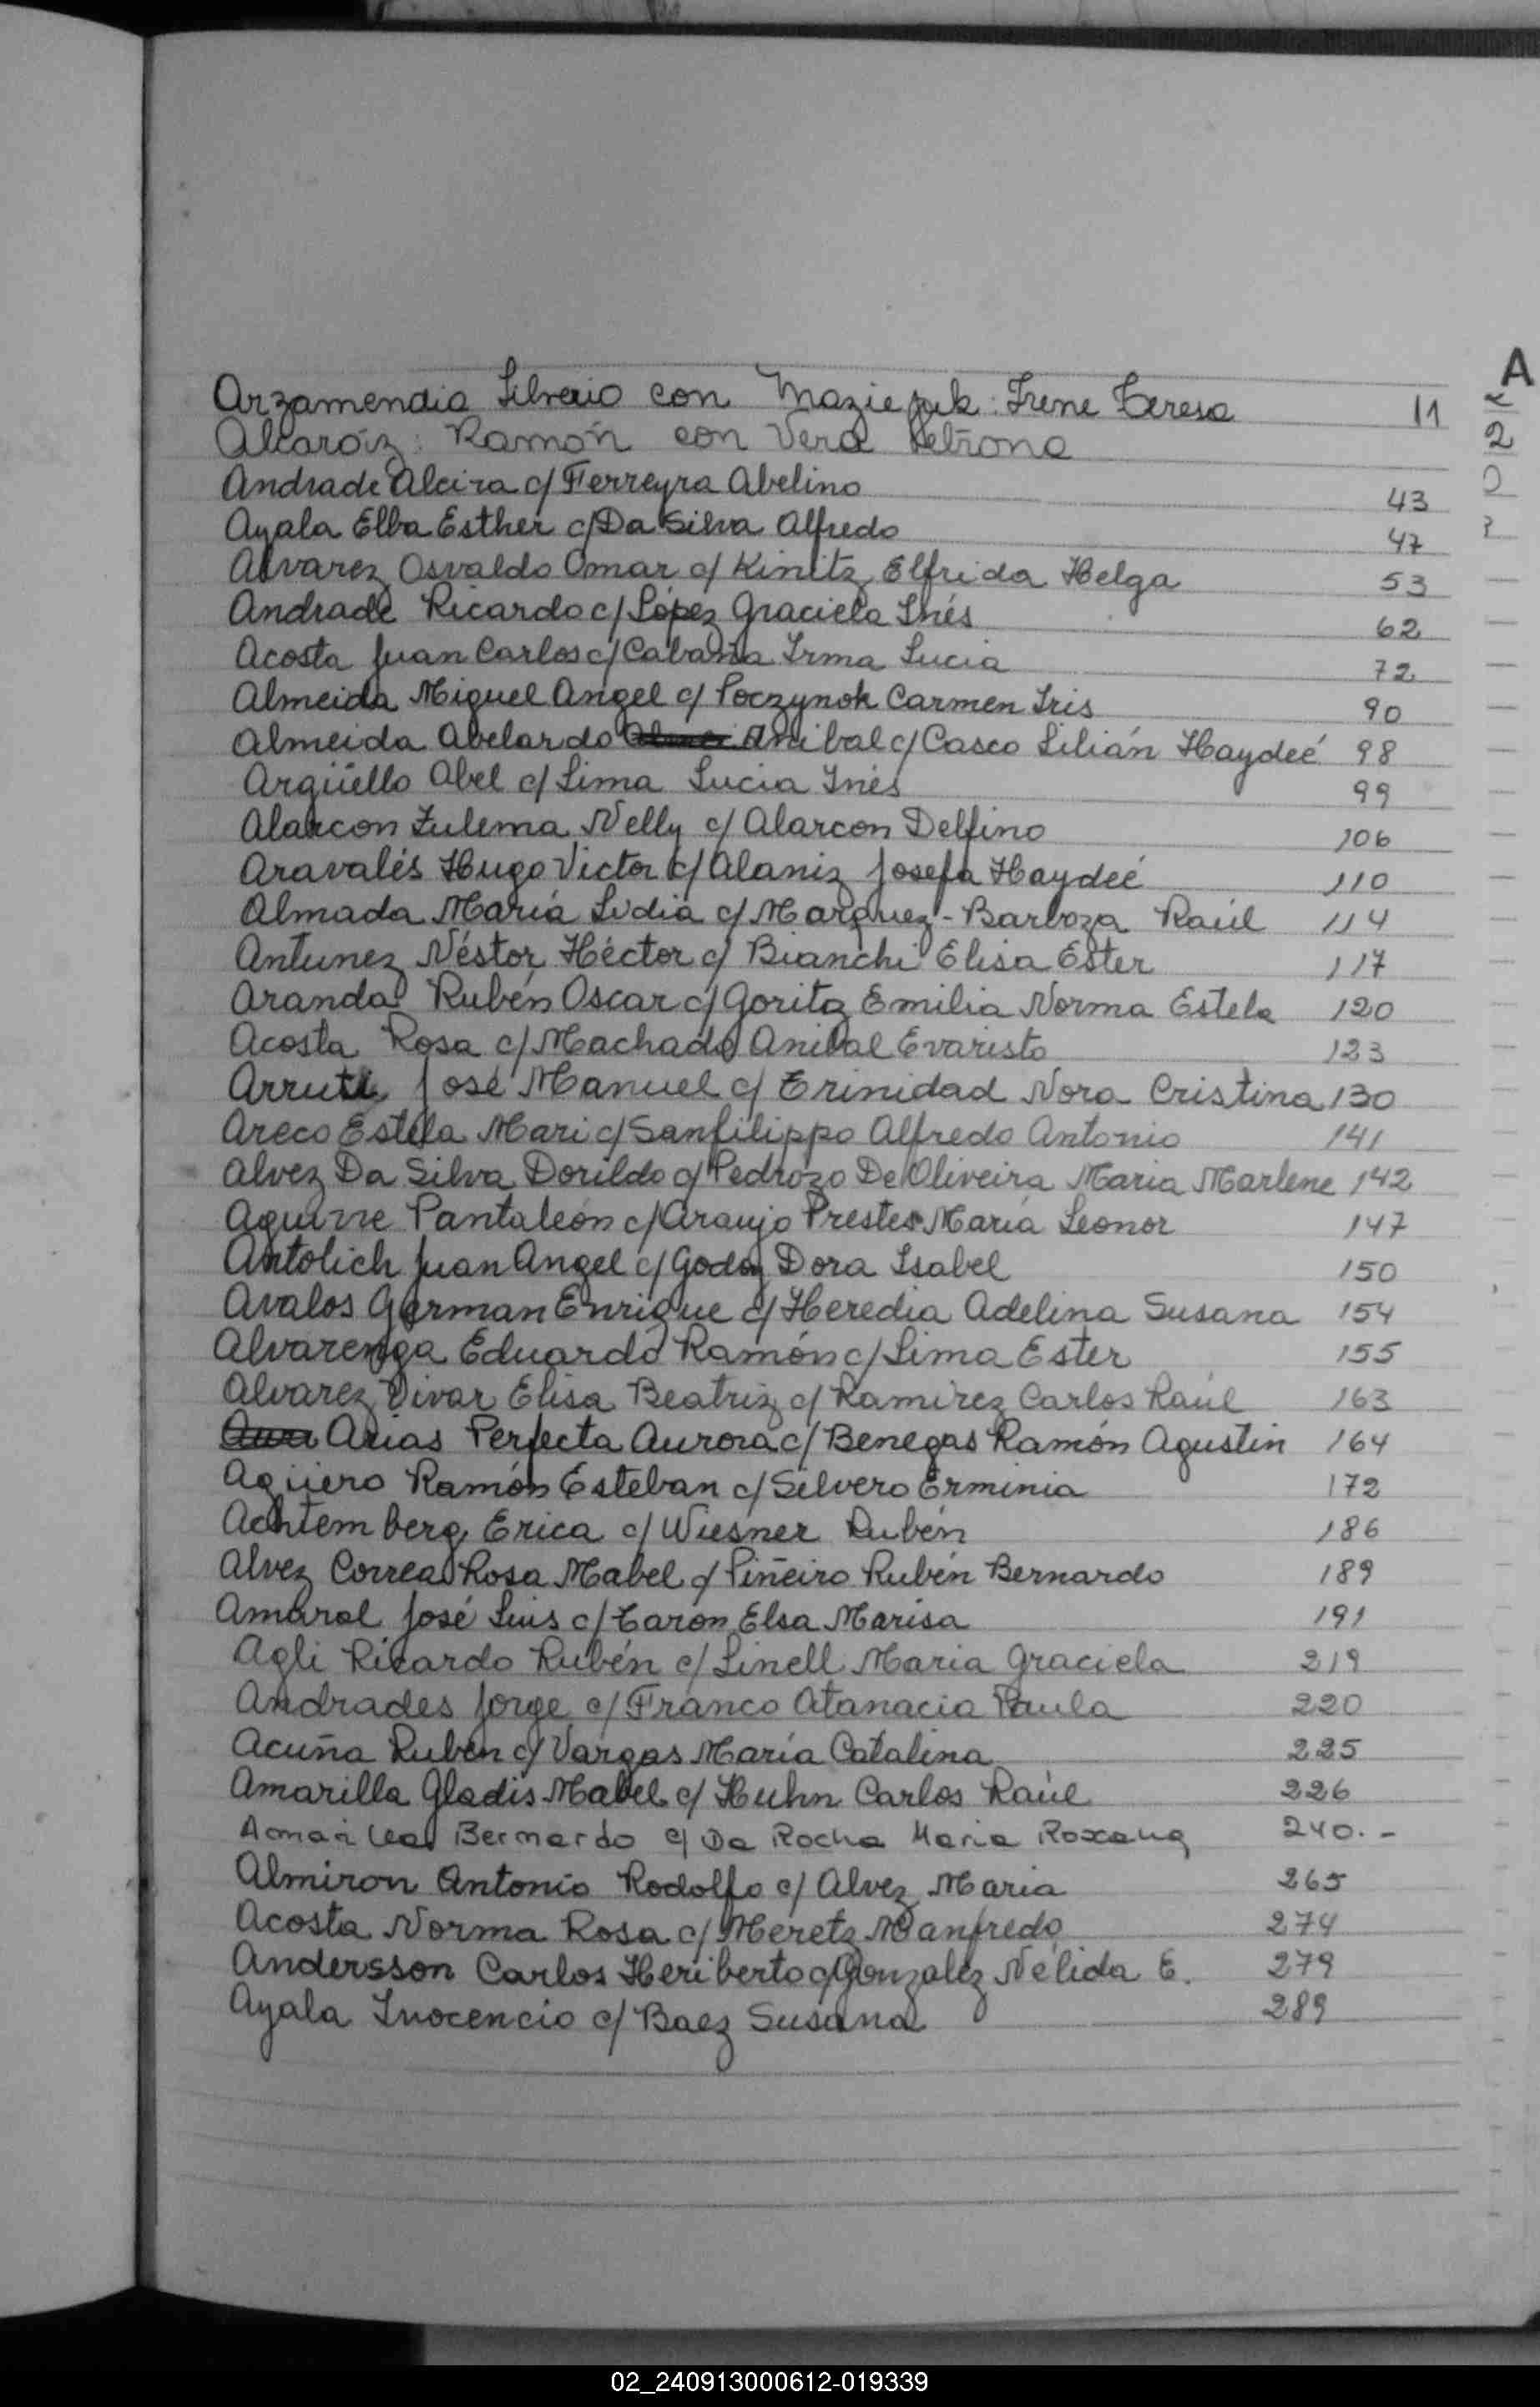 A
Arzamendia Silverio con Maziejuk: Irene Teresa 11
Alcaráz: Ramón con Vera Petrona
Andrade Alcira c/ Ferreyra Abelino 43
Ayala Elba Esther c/ Da Silva Alfredo 47
Alvarez Osvaldo Omar c/ Kinitz Elfrida Helga 53
Andrade Ricardo c/ López Graciela Inés 62
Acosta Juan Carlos c/ Cabaña Irma Lucia 72
Almeida Miguel Angel c/ Poczynok Carmen Iris 90
Almeida Abelardo Anibal c/ Casco Lilián Haydeé 98
Argüello Abel c/ Lima Lucia Inés 99
Alarcon Zulema Nelly c/ Alarcon Delfino 106
Aravalés Hugo Victor c/ Alaniz Josefa Haydeé 110
Almada María Lidia c/ Marquez - Barboza Raúl 114
Antunez Néstor Héctor c/ Bianchi Elisa Ester 117
Aranda Rubén Oscar c/ Goritz Emilia Norma Estela 120
Acosta Rosa c/ Machado Anibal Evaristo 123
Arruti José Manuel c/ Trinidad Nora Cristina 130
Areco Estela Mari c/ Sanfilippo Alfredo Antonio 141
Alvez Da Silva Dorildo c/ Pedrozo De Oliveira Maria Marlene 142
Aguirre Pantaleón c/ Araujo Prestes María Leonor 147
Antolich Juan Angel c/ Godoy Dora Isabel 150
Avalos German Enrique c/ Heredia Adelina Susana 154
Alvarenga Eduardo Ramón c/ Lima Ester 155
Alvarez Vivar Elisa Beatriz c/ Ramirez Carlos Raúl 163
Arias Perfecta Aurora c/ Benegas Ramón Agustin 164
Agüero Ramón Esteban c/ Silvero Erminia 172
Achtemberg Erica c/ Wiesner Rubén 186
Alvez Correa Rosa Mabel c/ Piñeiro Rubén Bernardo 189
Amaral José Luis c/ Taron Elsa Marisa 191
Agli Ricardo Rubén c/ Linell Maria Graciela 219
Andrades Jorge c/ Franco Atanacia Paula 220
Acuña Rubén c/ Vargas María Catalina 225
Amarilla Gladis Mabel c/ Huhn Carlos Raúl 226
Bernardo c/ Da Rocha Maria Roxana 240.-
Almiron Antonio Rodolfo c/ Alvez Maria 265
Acosta Norma Rosa c/ Meretz Manfredo 274
Andersson Carlos Heriberto c/ Gonzalez Nélida E. 279
Ayala Inocencio c/ Baez Susana 289
02_240913000612-019339